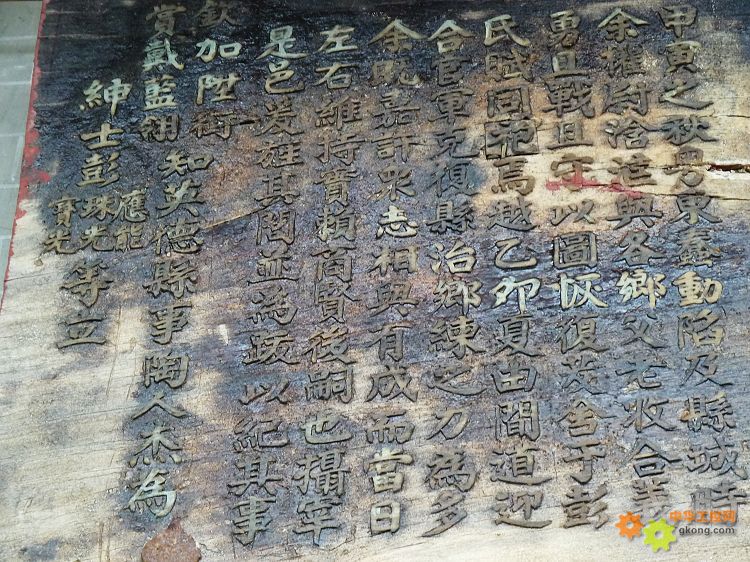 甲寅之秋粤東蠢動陷及縣城時
余權府浛洭與各鄉父老收合義
勇且戰且守以圖恢復茇舍于彭
氏賊同焉越乙卯夏由間道迎
合官軍克復縣治鄉練之力為多
余既嘉許衆志相與有成而當日
左右維持實賴商賢後嗣也攝宰
是邑爰旌其閭並為跋以紀其事
欽加陞銜
賞戴藍翎
知英德縣事陶人杰為
紳士彭應能珠光寶光等立
中华工控网
gkong.com